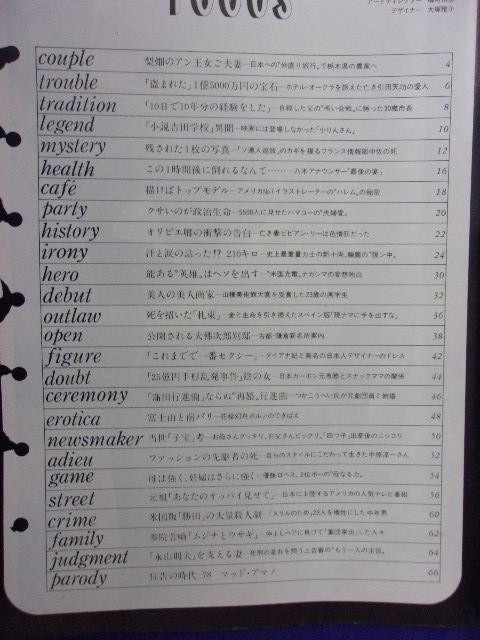 FOCUS
アートディレクター
デザイナー 大塚雅子
couple 梨畑のアン王女ご夫妻―日本への“仲直り旅行”で栃木県の農家へ 4
trouble 「盗まれた」1億5000万円の宝石―ホテル・オークラを訴えた亡き引田天功の愛人 6
tradition 「10日で10年分の経験をした」―自殺した父の“弔い合戦”に勝った30歳市長 8
legend 「小説吉田学校」異聞―映画には登場しなかった「小りんさん」 10
mystery 残された1枚の写真―「ソ連人追放」のカギを握るフランス情報部中佐の死 12
health この1時間後に倒れるなんて………―八木アナウンサー“最後の宴” 16
café 描けばトップモデル―アメリカNo.1イラストレーターの“ハレム”の秘密 18
party クサいのが政治生命―5500人に見せたハマコーの“夫婦愛” 20
history オリビエ卿の衝撃の告白―亡き妻ビビアン・リーは色情狂だった 22
irony 汗と涙の詰った!? 210キロ―史上最重量力士の新十両、輪島の“現ナマ” 24
hero 能ある“英雄”はヘソを出す―“米国充電”ナガシマの妄想独白 30
debut 美人の美人画家―山種美術館大賞を受賞した23歳の画学生 32
outlaw 死を招いた「札束」―金と生命を引き換えたスペイン版「現ナマに手を出すな」 36
open 公開される大佛次郎別邸―古都・鎌倉新名所案内 38
figure 「これまでで一番セクシー」―ダイアナ妃と無名の日本人デザイナーのドレス 42
doubt 「25億円手形乱発事件」陰の女―日本カーボン元専務とスナックママの関係 44
ceremony 「蒲田行進曲」ならぬ“再婚”行進曲―つかこうへい氏が元劇団員と結婚 46
erotica 富士山と南パリ―花柳幻舟ポルノのできばえ 48
newsmaker 当世「子宝」考―お母さんグッタリ、お父さんビックリ、「四つ子」出産後のニッコリ 50
adieu ファッションの先駆者の死―自らのスタイルにこだわって生きた中原淳一さん 52
game 母は強く、妊婦はさらに強く―優勝ロペス、2位ボーの“母なる力” 54
street 元祖「あなたのオッパイ見せて」―日本に上陸するアメリカの人気テレビ番組 56
crime 米国版「勝田」の大量殺人劇―「スリルのため」23人を犠牲にした中年男 60
family 参院音頭「ムジナとウサギ」―仲よしペアに負けて「集団家出」した人々 62
judgment 「永山則夫」を支える妻―死刑の是非を問う上告審の“もう一人の主役” 64
parody 狂告の時代 78 マッド・アマノ 66